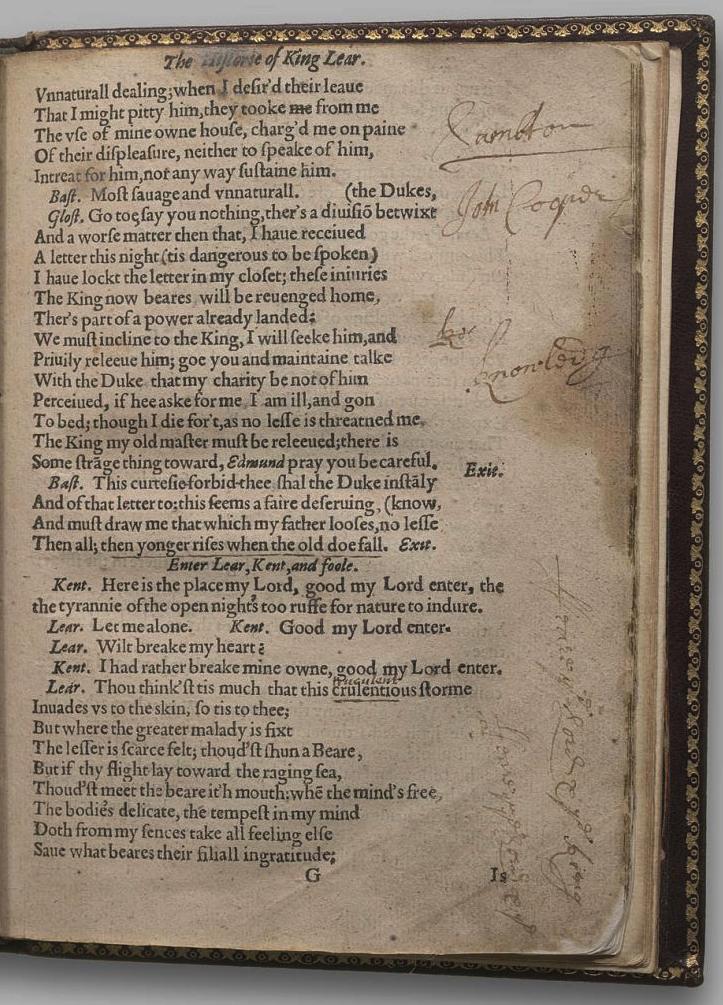 The Historie of King Lear.
Vnnaturall dealing; when I desir'd their leaue
That I might pitty him, they tooke me from me
The vse of mine owne house, charg'd me on paine
Of their displeasure, neither to speake of him,
Intreat for him, nor any way sustaine him.
Bast. Most sauage and vnnaturall. (the Dukes,
Glost. Go toe, say you nothing, ther's a diuisiō betwixt
And a worse matter then that, I haue receiued
A letter this night (tis dangerous to be spoken)
I haue lockt the letter in my closet; these iniuries
The King now beares, will be reuenged home,
Ther's part of a power already landed:
We must incline to the King, I will seeke him, and
Priuily releeue him; goe you and maintaine talke
With the Duke that my charity be not of him
Perceiued, if hee aske for me, I am ill, and gon
To bed; though I die for't, as no lesse is threatned me,
The King my old master must be releeued; there is
Some strāge thing toward, Edmund pray you be careful. Exit.
Bast. This curtesie forbid thee shal the Duke instāly
And of that letter to; this seems a faire deseruing, (know,
And must draw me that which my father looses, no lesse
Then all; then yonger rises when the old doe fall. Exit.
Enter Lear, Kent, and foole.
Kent. Here is the place my Lord, good my Lord enter, the
the tyrannie of the open night's too ruffe for nature to indure.
Lear. Let me alone. Kent. Good my Lord enter.
Lear. Wilt breake my heart?
Kent. I had rather breake mine owne, good my Lord enter.
Lear. Thou think'st tis much that this crulentious storme
Inuades vs to the skin, so tis to thee;
But where the greater malady is fixt
The lesser is scarce felt; thoud'st shun a Beare,
But if thy flight lay toward the raging sea,
Thoud'st meet the beare it'h mouth; whē the mind's free,
The bodies delicate, the tempest in my mind
Doth from my sences take all feeling else
Saue what beares their filiall ingratitude;
G Is
John